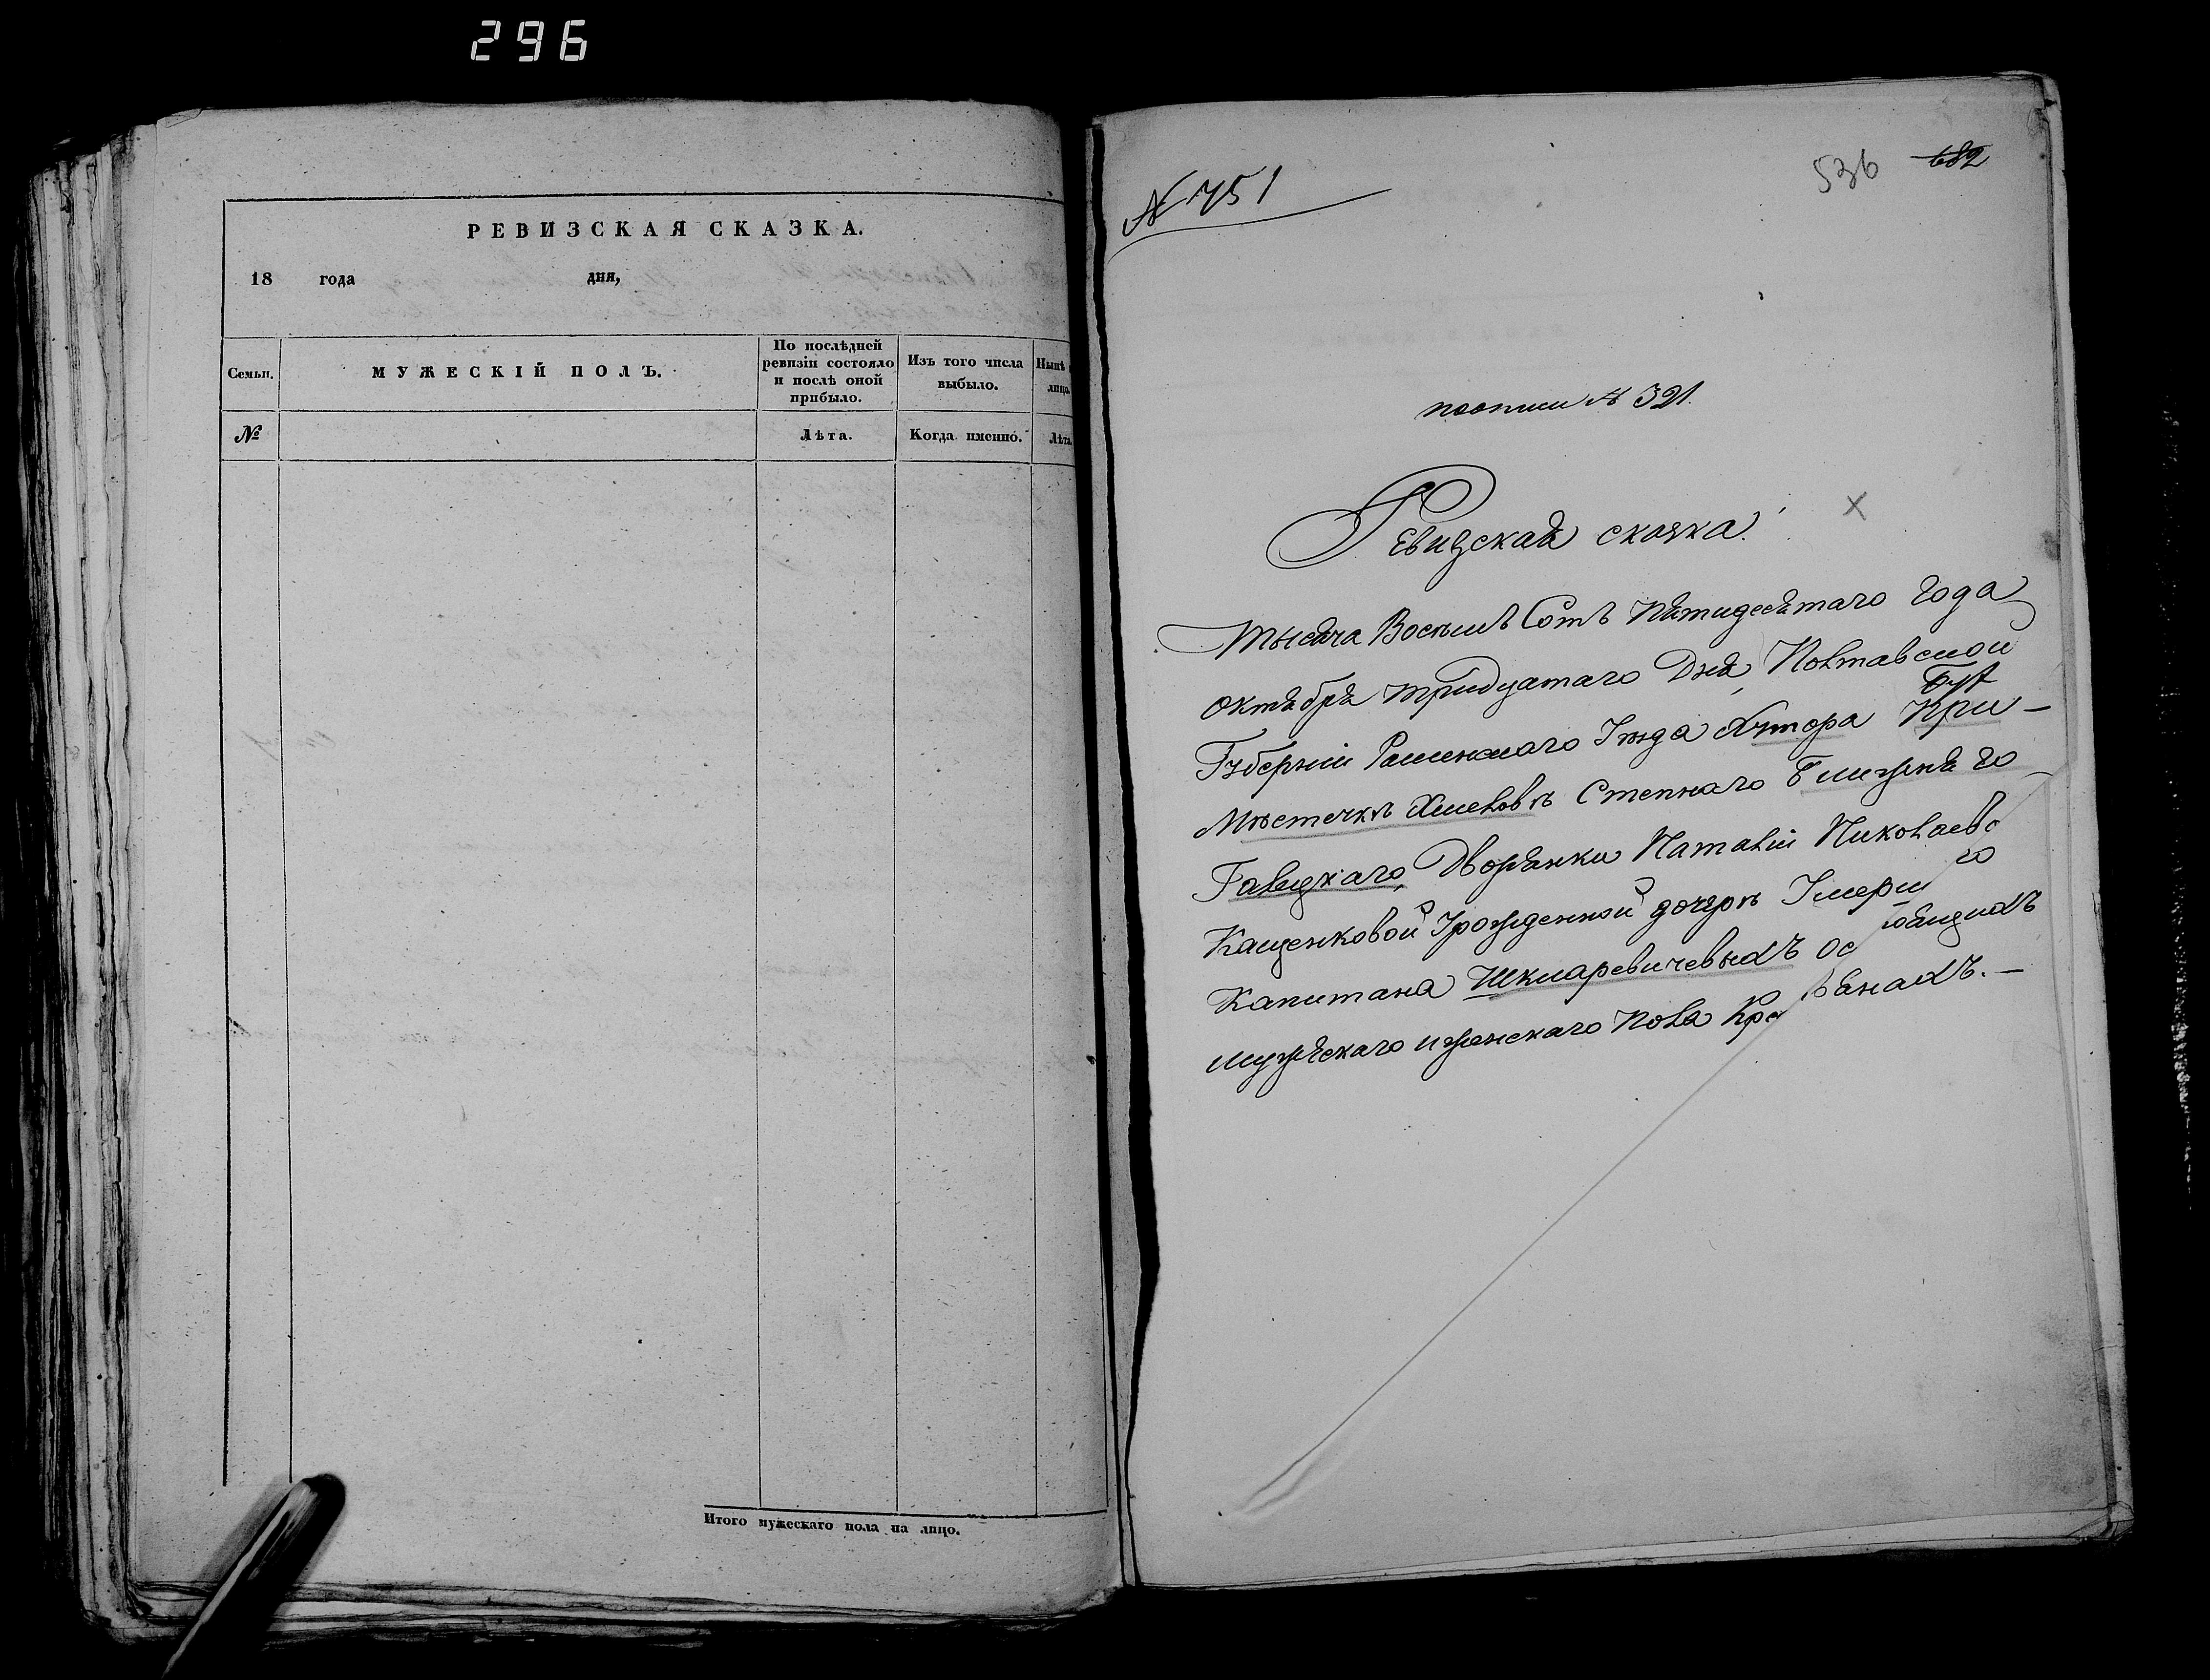 296
РЕВИЗСКАЯ СКАЗКА.
18 года дня,
Семьи.
МУЖЕСКІЙ ПОЛЪ.
По послѣдней ревизіи состояло и послѣ оной прибыло.
Изъ того числа выбыло.
Нынѣ лицо.
№
Лѣта.
Когда именно.
Лѣта.
Итого мужескаго пола на лицо.
№ 751
536 682
поописи № 321.
Ревизская сказка.
Тысяча Восемь Сотъ Пятидесятаго Года
октября тридцатаго Дня, Полтавской
Губерніи Роменскаго Уезда Хутора При-
Мѣстечкѣ Хмеловѣ Степнаго
Дворянки Наталіи Николаево
Кащенковой Урожденной дочерѣ Умерш го
Капитана Шкляревичевыхъ ос оящихъ
мужескаго иженскаго пола Кре ьянахъ.-